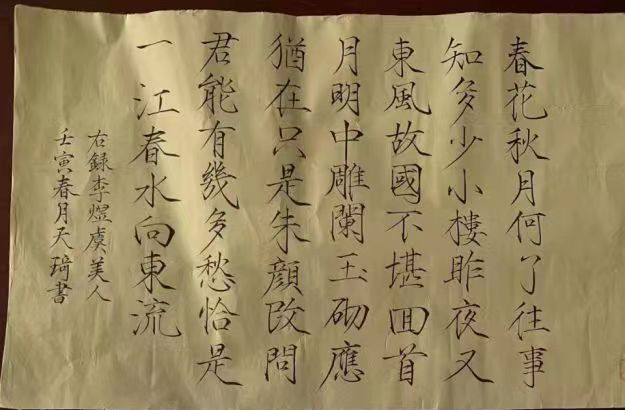 春花秋月何了往事
知多少小樓昨夜又
東風故國不堪回首
月明中雕闌玉砌應
猶在只是朱顏改問
君能有幾多愁恰是
一江春水向東流
右録李煜虞美人
壬寅春月天琦書